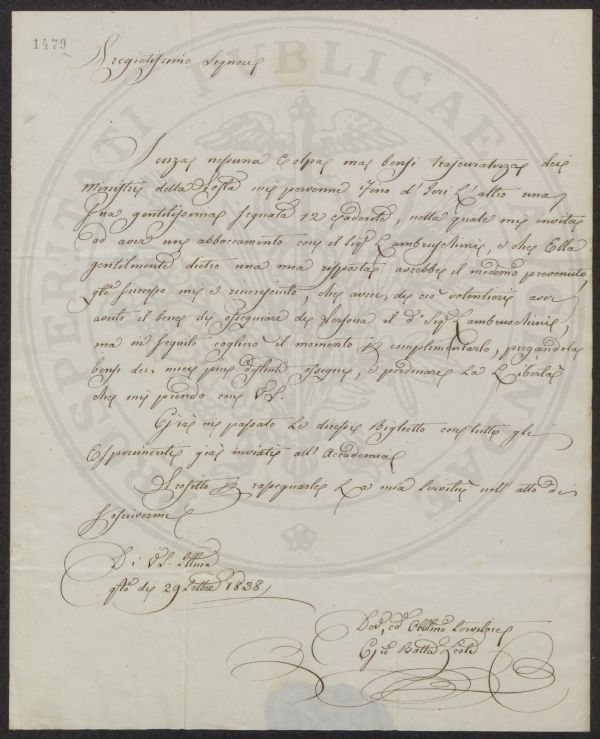 1479
Pregiatissimo Signore
Senza nessuna Colpa ma bensi trascuratezza dei
Ministri della Posta mi pervenne Jeno d' Jeri L'altro una
Sua gentilissima segnata 12 cadente, nella quale mi invitai
ad aver un abboccamento con il Sigr Lambruschini, e che Ella
gentilmente dietro una mia risposta avrebbe il medemo prevenuto,
qto successo mi è rincresciuto, che avrei di ciò volentieri aver
avuto il bene di ossequiare di Persona il do Sigr Lambruschini,
ma in seguito coglierò il momento p complimentarlo, pregandola
bensi dei miei più distinti ossequi, e perdonare La Libertà
che mi prendo con VS.
Già mi passato Le diressi Biglietto con tutti gli
Esperimenti già inviati all' Accademia
Mi resitto p rassegnarle La mia Servitù nell' atto di
Soscrivermi
Di VS. Illma
qto dì 29 7bre 1838
Devo, ed Obblmo Servitore
Gio Batta